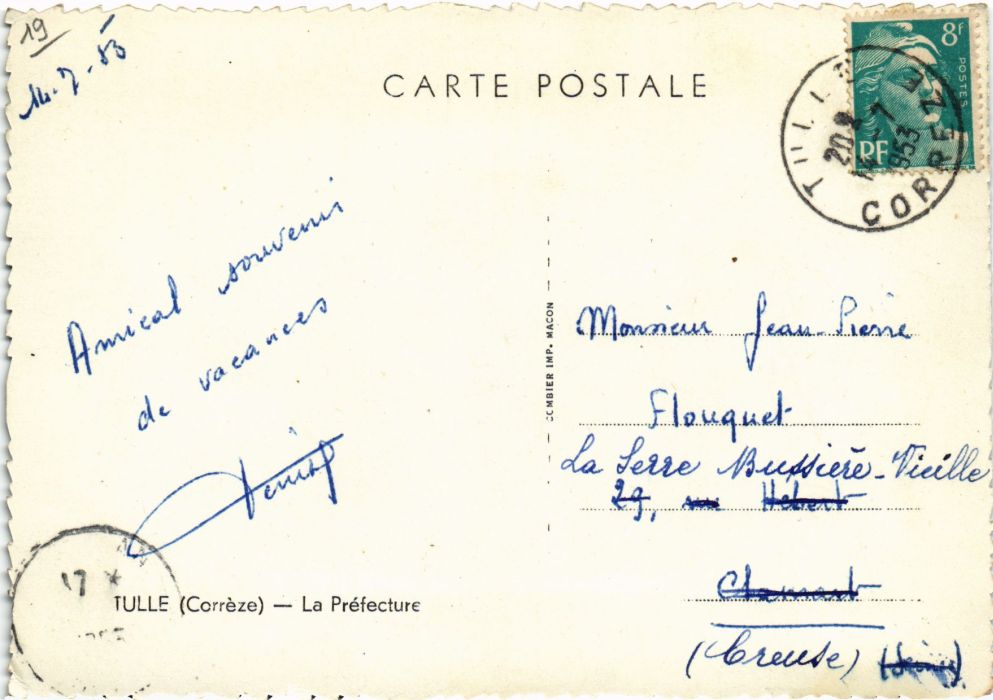 19
14-7-53
CARTE POSTALE
8f
POSTES
RF
TULLE
20
14-7
1953
CORREZE
Amical souvenir
de vacances
COMBIER IMP. MACON
Monsieur Jean-Pierre
Flouquet
La Serre Bussière-Vieille
29, rue Hébert
Clamart
(Creuse) (Seine)
17 *
TULLE (Corrèze) — La Préfecture